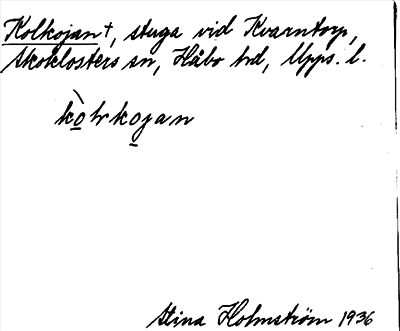 Kolkojan †, stuga vid Kvarntorp,
Skoklosters sn, Håbo hd, Upps. l.
kòlrkojan
Stina Holmström 1936